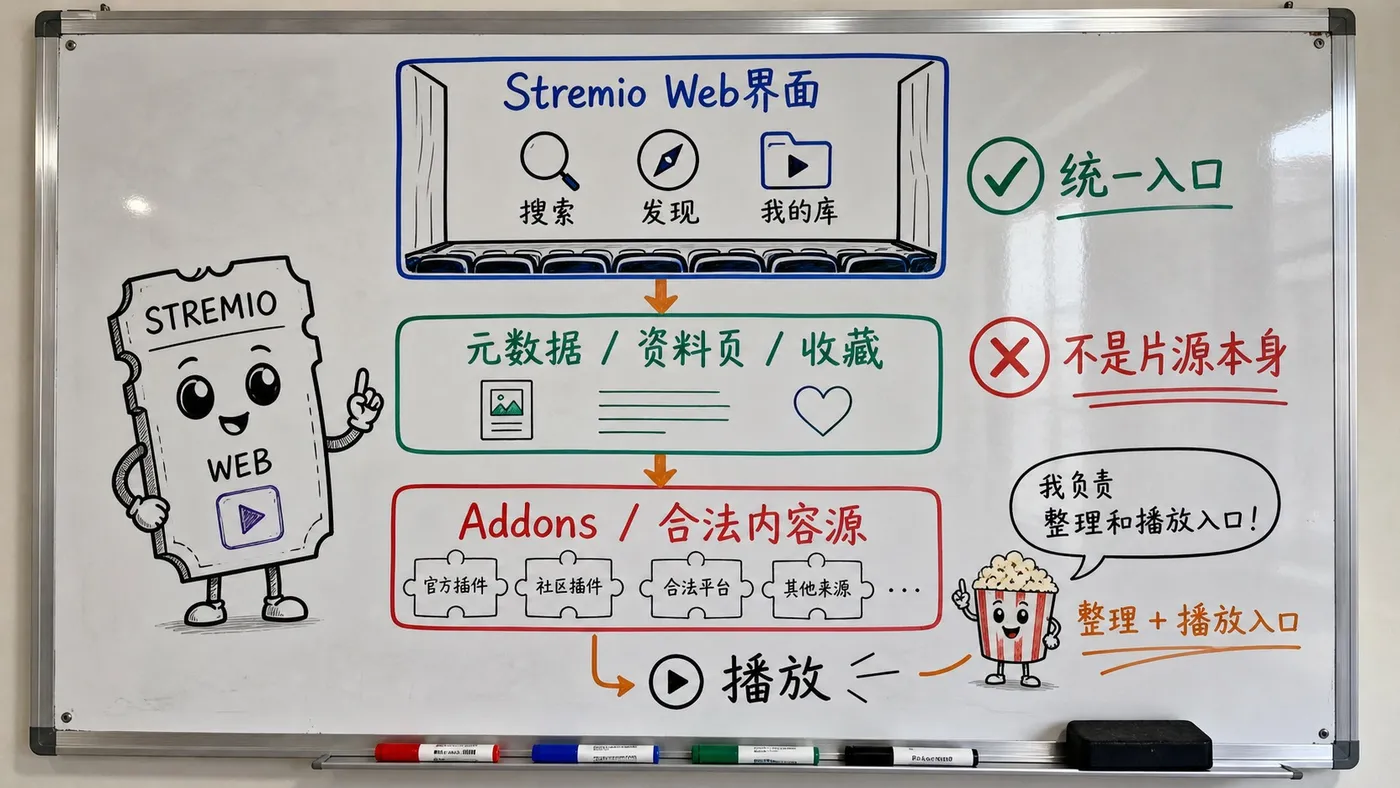 Stremio Web界面
搜索
发现
我的库
统一入口
STREMIO
WEB
元数据 / 资料页 / 收藏
不是片源本身
Addons / 合法内容源
官方插件
社区插件
合法平台
其他来源
...
我负责
整理和播放入口!
整理 + 播放入口
播放